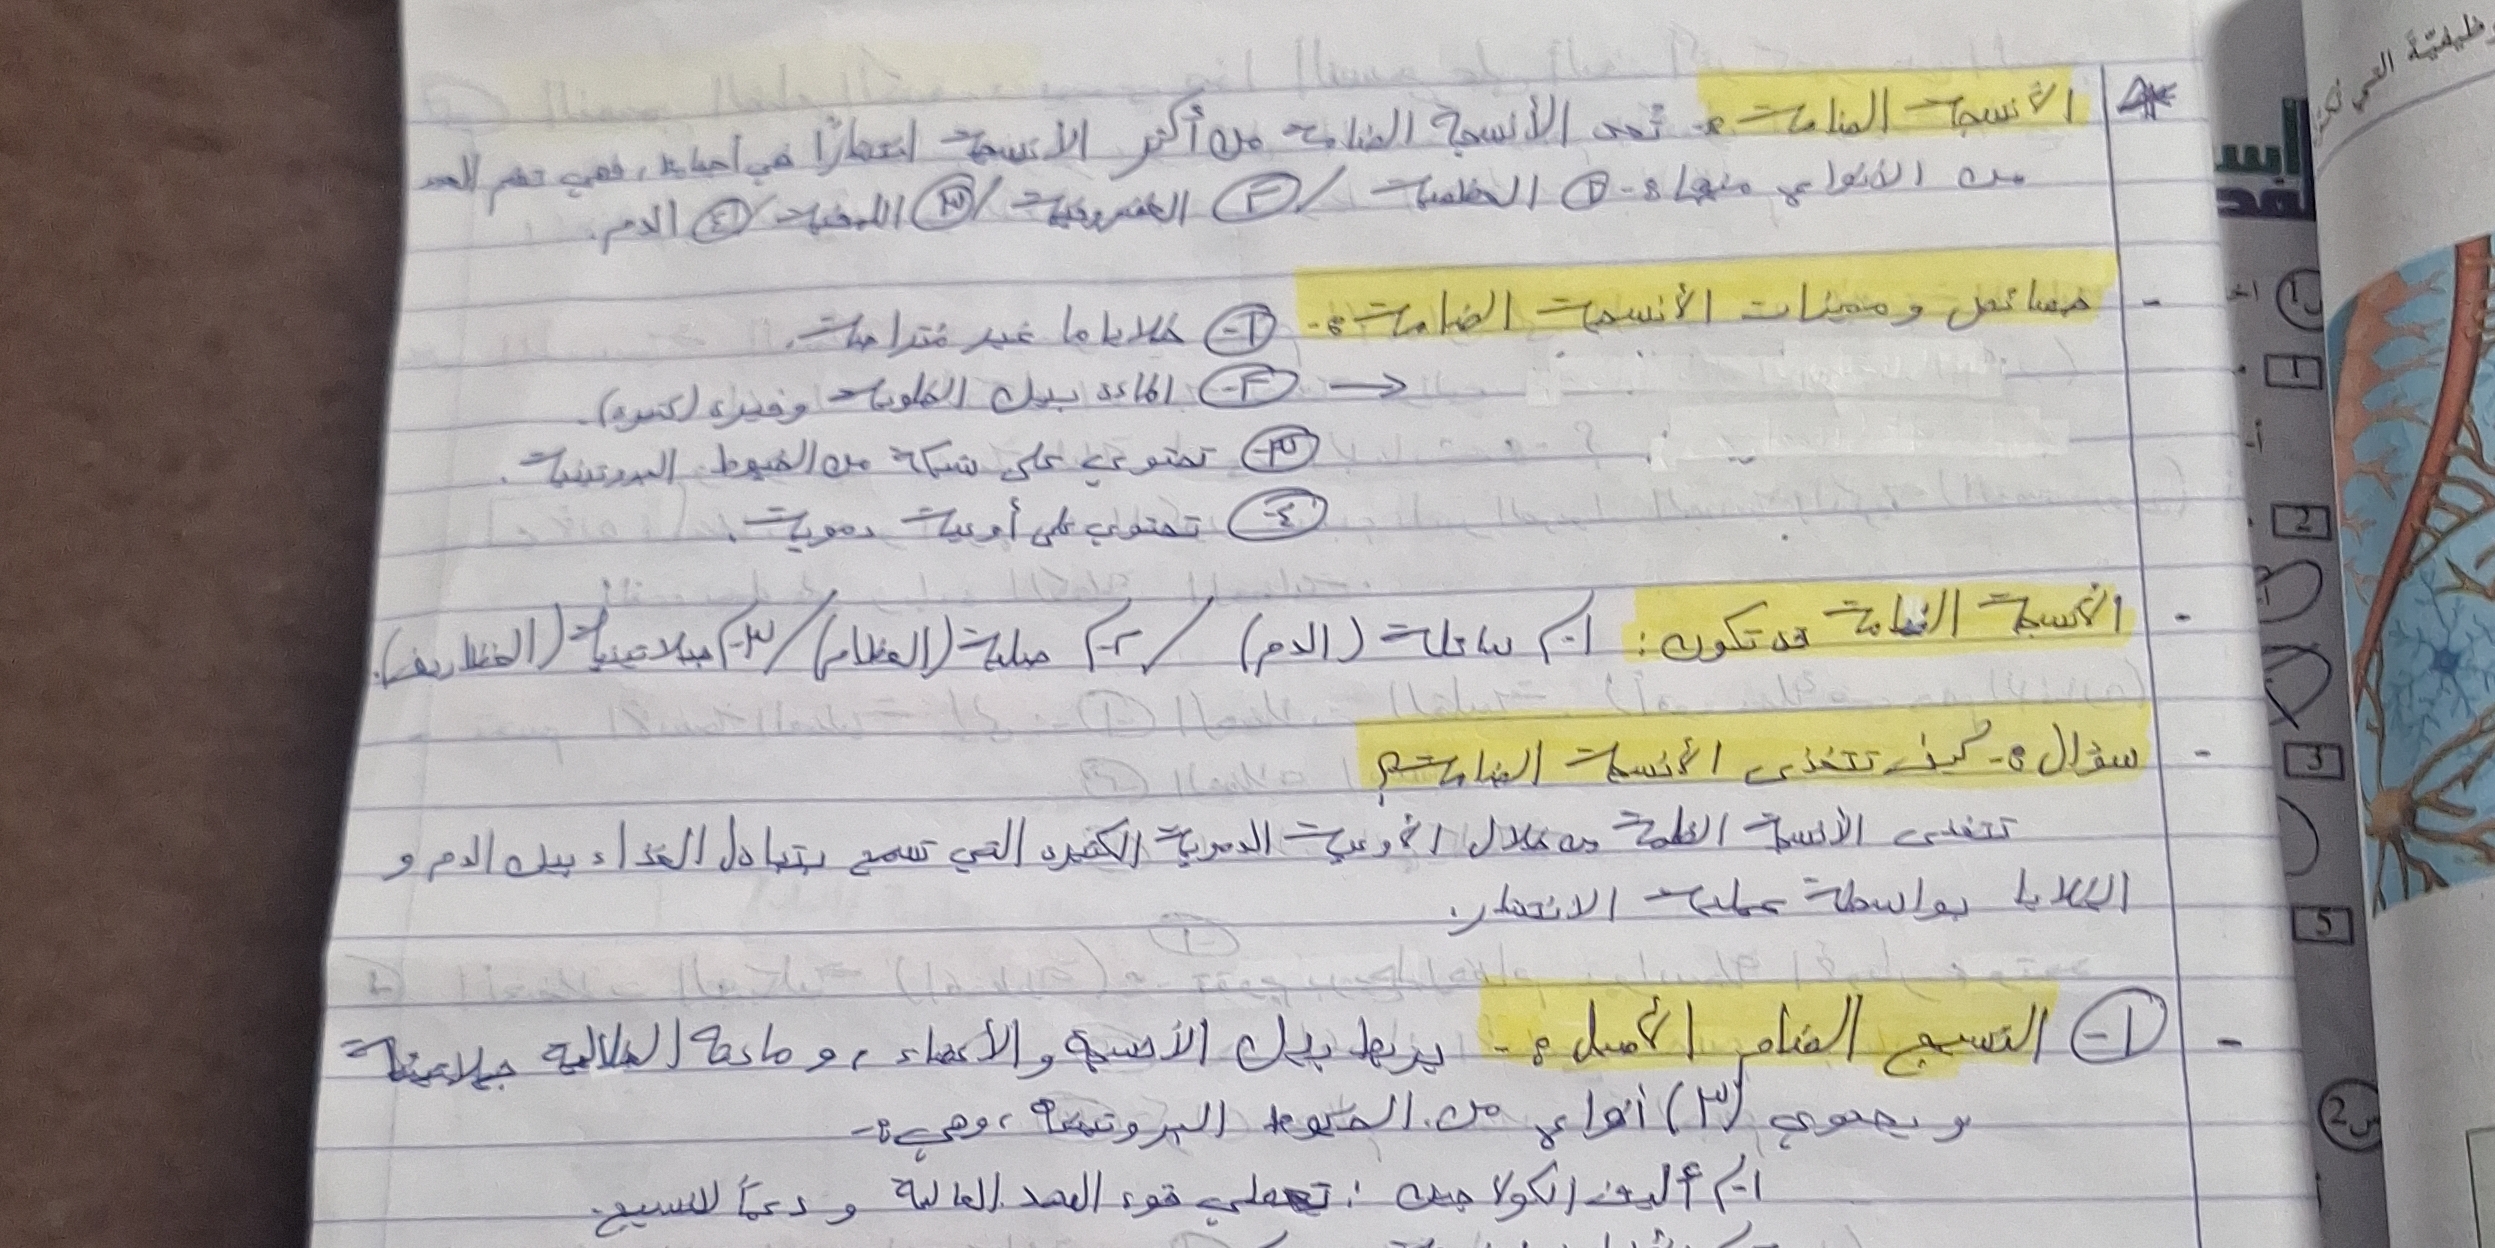 الأنسجة الضامة :- تعد الأنسجة الضامة من أكثر الأنسجة انتشارًا في أجسامنا، فهي تضم العديد
من الأنواع منها :- ① العظمية / ② الغضروفية / ③ الدهنية / ④ الدم.
- خصائص ومميزات الأنسجة الضامة :- ①- خلاياها غير متراصة.
②- المادة بين الخلوية وفيرة (كثيرة). ←
③- تحتوي على شبكة من الخيوط البروتينية.
④- تحتوي على أوعية دموية.
- الأنسجة الضامة قد تكون : ١-> سائلة (الدم) / ٢-> صلبة (العظام) / ٣-> جيلاتينية (الغضاريف).
- سؤال :- كيف تتغذى الأنسجة الضامة؟
تتغذى الأنسجة الضامة من خلال الأوعية الدموية الكثيرة التي تسمح بتبادل الغذاء بين الدم و
الخلايا بواسطة عملية الانتشار.
- ①- النسيج الضام الأصيل :- يربط بين الأنسجة والأعضاء، ومادته الخلالية جيلاتينية
ويحتوي (٣) أنواع من الخيوط البروتينية، وهي :-
١-> ألياف الكولاجين : تعطي قوة الشد العالية ودعمًا للنسيج.
وظيفيّة التي
1
2
3
5
س2